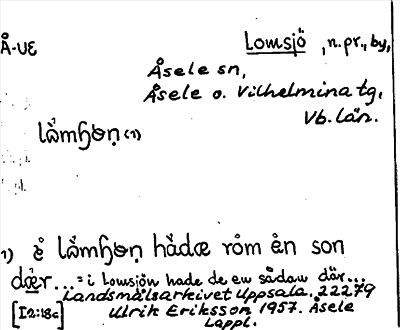 Å-VE Lomsjö, n.pr., by,
Åsele sn,
Åsele o. Vilhelmina tg,
Vb. län.
1) hàdæ ròm èn son
... = i Lomsjön hade de en sådan där...
Landsmålsarkivet Uppsala. 22279
[I2:18c] Ulrik Eriksson 1957. Åsele
Lappl.